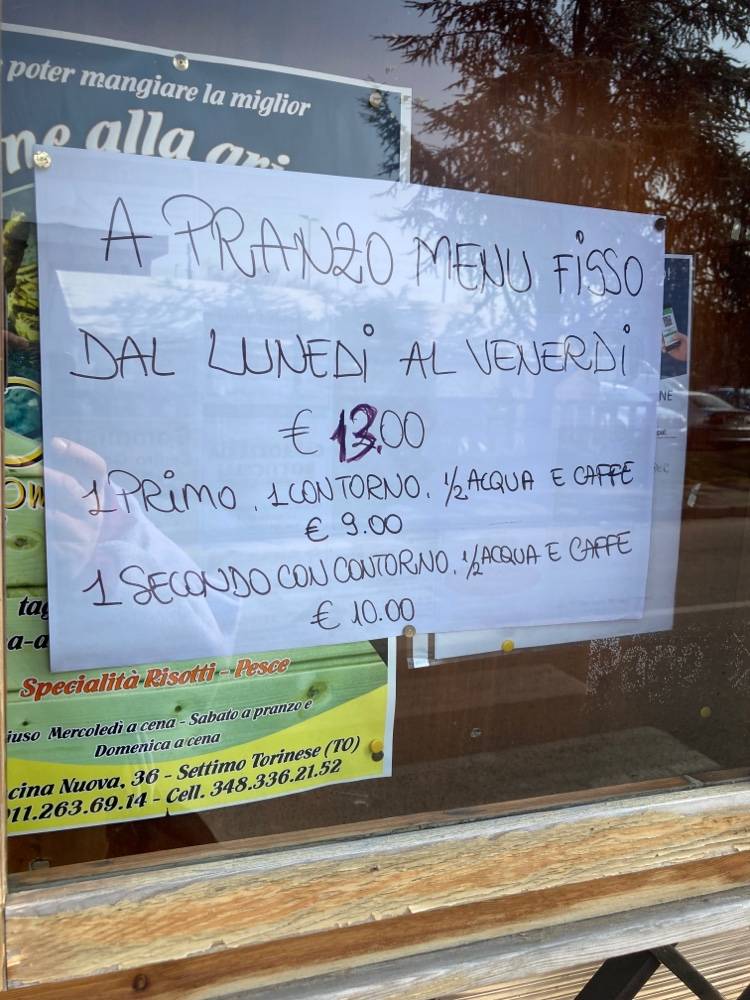 poter mangiare la miglior
alla
A PRANZO MENU FISSO
DAL LUNEDÌ AL VENERDÌ
€ 13.00
1 PRIMO. 1 CONTORNO. 1/2 ACQUA E CAFFE
€ 9.00
1 SECONDO CON CONTORNO. 1/2 ACQUA E CAFFE
€ 10.00
Specialità Risotti - Pesce
iuso Mercoledì a cena - Sabato a pranzo e
Domenica a cena
cina Nuova, 36 - Settimo Torinese (TO)
011.263.69.14 - Cell. 348.336.21.52